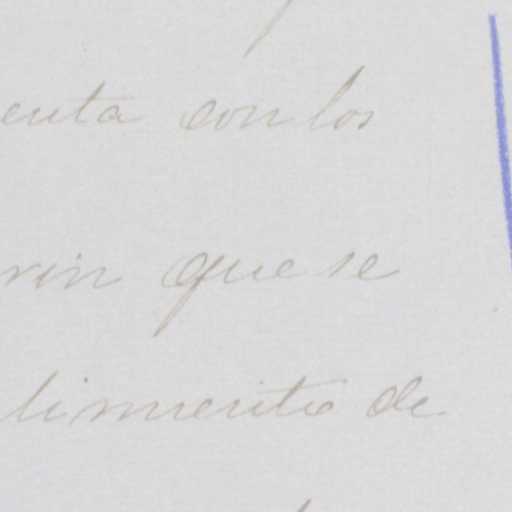 enta con los
rin que se
limiento de